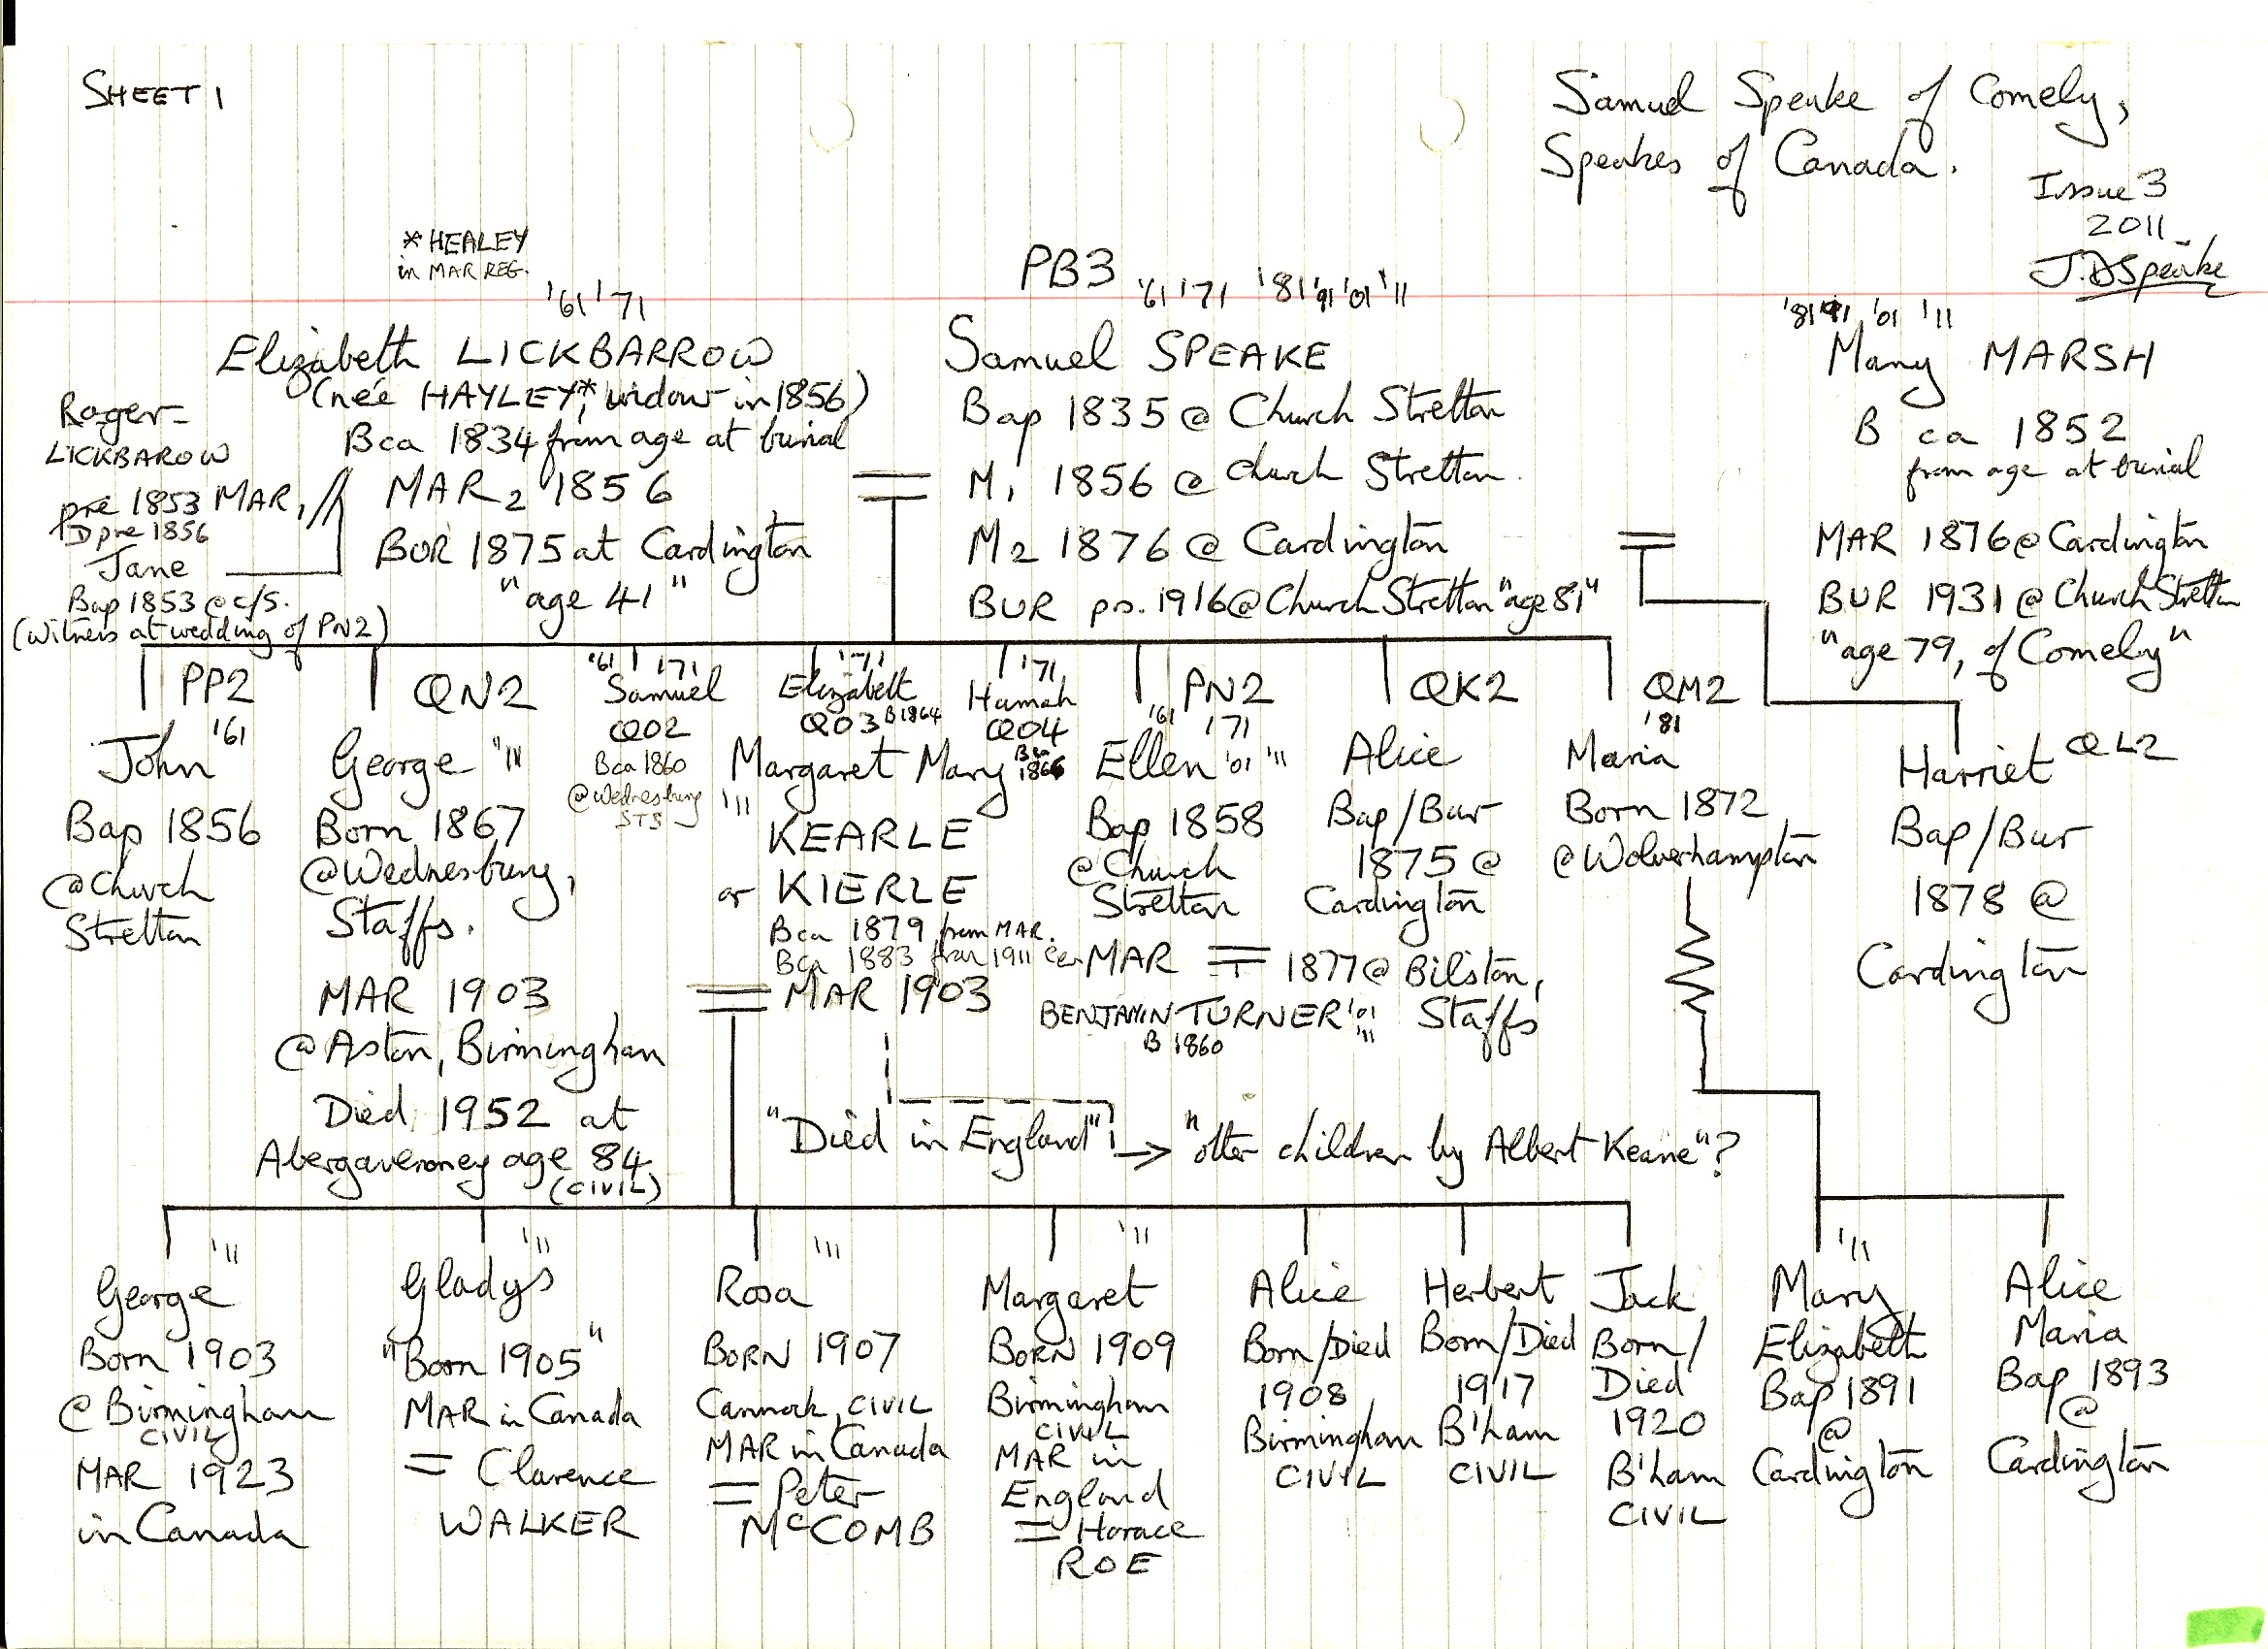 SHEET 1
Samuel Speake of Comely,
Speakes of Canada.
Issue 3
2011
J.D Speake
* HEALEY
in MAR REG.
PB3
'61 '71
'61 '71 '81 '91 '01 '11
'81 '91 '01 '11
Elizabeth LICKBARROW
(née HAYLEY*, widow in 1856)
Bca 1834 from age at burial
MAR2 1856
BUR 1875 at Cardington
"age 41"
Roger
LICKBAROW
pre 1853 MAR,
D pre 1856
Jane
Bap 1853 @ C/S.
(Witness at wedding of PN2)
Samuel SPEAKE
Bap 1835 @ Church Stretton
M1 1856 @ Church Stretton.
M2 1876 @ Cardington
BUR ps. 1916 @ Church Stretton "age 81"
Mary MARSH
B ca 1852
from age at burial
MAR 1876 @ Cardington
BUR 1931 @ Church Stretton
"age 79, of Comely"
PP2
John '61
Bap 1856
@ Church
Stretton
QN2
George '11
Born 1867
@ Wednesbury,
Staffs.
MAR 1903
@ Aston, Birmingham
Died 1952 at
Abergavenney age 84
(CIVIL)
'61 '71
Samuel
QO2
Bca 1860
@ Wednesbury
STS
'71
Elizabeth
QO3 B1864
'71
Hannah
QO4
Bca
1866
Margaret Mary
'11
KEARLE
or KIERLE
Bca 1879 from MAR.
Bca 1883 from 1911 Cen
MAR 1903
"Died in England"
→ "other children by Albert Keane"?
PN2
'61 '71
Ellen '01 '11
Bap 1858
@ Church
Stretton
MAR = 1877 @ Bilston,
Staffs
BENJAMIN TURNER '01 '11
B 1860
QK2
Alice
Bap/Bur
1875 @
Cardington
QM2
'81
Maria
Born 1872
@ Wolverhampton
QL2
Harriet
Bap/Bur
1878 @
Cardington
'11
George
Born 1903
@ Birmingham
CIVIL
MAR 1923
in Canada
'11
Gladys
"Born 1905"
MAR in Canada
= Clarence
WALKER
'11
Rosa
BORN 1907
Cannock, CIVIL
MAR in Canada
= Peter
McCOMB
'11
Margaret
BORN 1909
Birmingham
CIVIL
MAR in
England
= Horace
ROE
Alice
Born/Died
1908
Birmingham
CIVIL
Herbert
Born/Died
1917
B'ham
CIVIL
Jack
Born/
Died
1920
B'ham
CIVIL
'11
Mary
Elizabeth
Bap 1891
@
Cardington
Alice
Maria
Bap 1893
@
Cardington